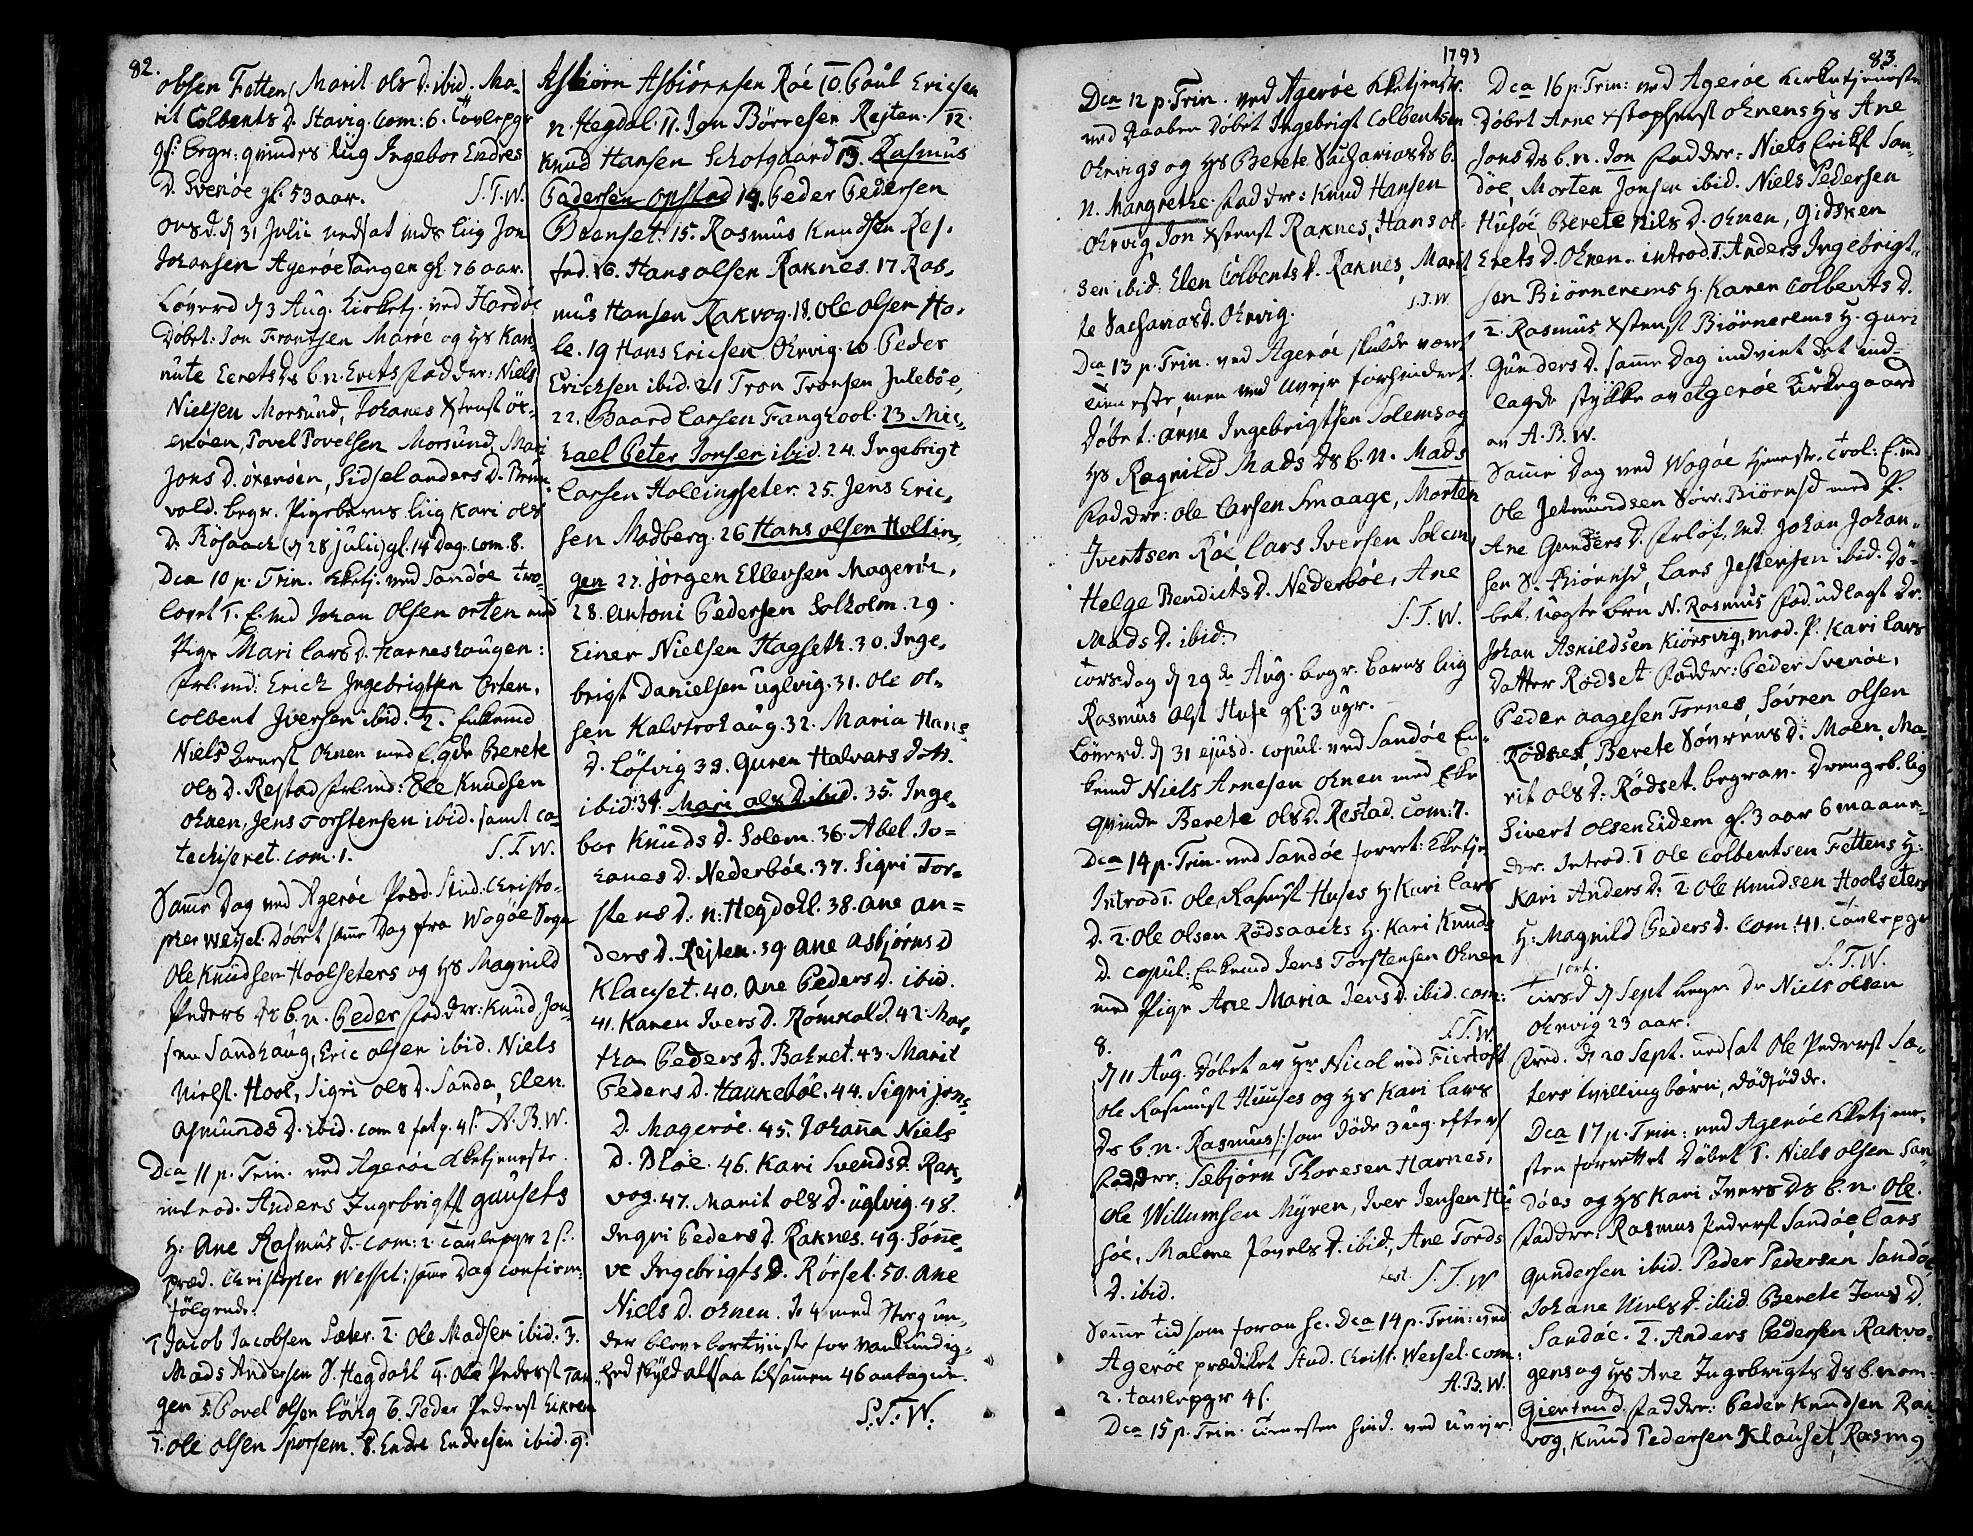 82.
olsen Fetten, Marit ols D. ibid. Ma-
rit Colbents D. Stavig. Com: 6. Tavlepge
Qvindes liig Ingebor Endres
D. Svenøe gl. 53 aar. S.T.W.
Onsd. d 31 Julii nedsat Mds liig Jon
Johansen Agerøetangen gl 76 aar.
Løverd d 3 Aug. Kirketj. ved Harøe
Døbt: Jon Trontsen Marøe og Hs Kan-
nute Eerets Ds b.n. Erets Fadder: Niels
Nielsen Morsund, Johanes Xstenst
Povel Povelsen Morsund, Mari
Jons D. oxenøen, Sidsel anders D.
vold. begr. Pigebarns liig Kari ols
D. Røsaack (d 28 julii) gl. 14 Dag. Com. 8.
Dca 10 p. Trin. Kketj. ved Sandøe tro-
lovet 1. E. Md Johan Olsen orten med
Pige Mari Lars D. Harneshaugen:
Erich Ingebrigtsen Orten,
Colbent Iversen ibid. 2. Enkemd
Niels Ohnen med Berete
ols D. Restad Ole Knudsen
Ohnen, Jens Torstensen ibid. samt ca-
techiseret. com. 1. S.T.W.
Samme Dag ved Agerøe Præd. Stud. Christo-
pher Wessel. Døbt samme Dag fra Wogøe Sogn
Ole Knudsen Hoolseters og Hs Magnild
Peders Ds b.n. Peder Fadder: Knud Jon-
sen Sandhaug, Eric olsen ibid. Niels
Nielst. Hool, Sigri ols D. Sande, Elen
Asmunds D. ibid. com 2 A.B.W.
Dca 11 p. Trin. ved Agerøe Kketjeneste.
introd. Anders Ingebrigtst gausets
H. Ane Rasmus D. Com: 2. Tavlepge 2 s.
præd. Christopher Wessel: samme Dag confirm:
følgende.
1. Jacob Jacobsen Sæter. 2. Ole Madsen ibid. 3.
Mads Andersen Y. Hegdahl 4. Ole Pederst Tan-
gen 5. Povel olsen Løvig 6. Peder Pederst Eikrem
7. Ole olsen Sporsem. 8. Endre Endresen ibid. 9.
Asbiørn Asbiørnsen Røe 10. Poul Ericsen
n. Hegdal. 11. Jon Børresen Rejten. 12.
Knud Hansen Schotgaard 13. Rasmus
Pedersen opstad 14. Peder Pedersen
Orenset. 15. Rasmus Knudsen Res-
tad. 16. Hans olsen Raknes. 17 Ras-
mus Hansen Rakvog. 18. Ole olsen Ho-
le. 19 Hans Ericsen Ohrvig. 20 Peder
Erichsen ibid. 21 Tron Tronsen Julebøe,
22. Baard Larsen Fanghool. 23. Mic-
hael Peter Jonsen ibid. 24. Ingebrigt
Larsen Hollingseter. 25. Jens Eric-
sen Madberg. 26 Hans olsen Hollin-
gen 27. Jørgen Ellevsen Magerøe,
28. Antoni Pedersen Solholm. 29.
Einer Nielsen Hagseth. 30. Inge-
brigt Danielsen uglvig. 31. Ole ol-
sen Kalvtrohaug. 32. Maria Hans
D. Løfvig 33. Guren Halvars Dtt.
ibid: 34. Mari ols D. ibid. 35. Inge-
bor Knuds D. Solem. 36. Abel Jo-
hanes D. Nederbøe. 37. Sigri Tor-
stens D. n. Hegdahl. 38. Ane An-
ders D. Rejten. 39 Ane Asbjørns D
Klauset. 40. Ane Peders D. ibid.
41. Karen Ivers D. Rømhold. 42. Mar-
tha Peders D. Baknet. 43. Marit
Peders D. Haukebøe. 44. Sigri jons
D. Magerøe. 45. Johanna Niels
D. Bloe. 46. Kari Svends D. Rak-
vog. 47. Marit ols D. uglvig. 48.
Ingri Peders D. Raknes. 49. Sønne-
ve Ingebrigts D. Rørset. 50. Ane
Niels D. ohnen. De 4 med Streg un-
der bleve bortviiste for vankundig-
hed skyld altsaa tilsammen 46 antagne.
S.T.W.
1793
Dca 12 p. Trin. ved Agerøe Kketjenste.
ved Daaben Døbt Ingebrigt Colbentsen
Ohrvigs og Hs Berete Sacharias Ds b.
n. Mangrethe. Fadder: Knud Hansen
Ohrvig, Jon Xstenst Raknes, Hans ol-
sen ibid. Elen Colbents D. Raknes, Marit
te Sacharias D. Ohrvig. S.T.W.
Dca 13 p. Trin. ved Agerøe skulde været
tieneste, men ved Uvejr forhindret.
Døbt. Arne Ingebrigtsen Solems og
Hs Ragnild Mads Ds b.n. Mads
Fadder: Ole Larsen Smaage, Morten
Ivertsen Røe Lars Iversen Solem,
Helge Bendicts D. Nederbøe, Ane
Mads D. ibid. S.T.W.
Torsdag d 29 de Aug. begr. barns liig
Rasmus olst Huse gl: 3 uger.
Løverd. d 31 ejusd. copul. ved Sandøe En-
kemd Niels Arnesen Ohnen med Enke
Qvinde Berete Ols D. Restad. Com: 7.
Dca 14 p. Trin. ved Sandøe forret: Kketje
Introd 1. Ole Rasmust Huses H. Kari Lars
D. 2. Ole Olsen Rødsaacks H. Kari Knuds
D. copul: Enkemd Jens Torstensen Ohnen
med Pige Ane Maria Jens D. ibid. com:
8. S.T.W.
d 11 Aug. Døbt av Hr Nicol ved Fiertoft
Ole Rasmust Huuses og Hs Kari Lars
Ds b.n. Rasmus /: som døde 3 ug. efter /
Fadder: Sæbjørn Thoresen Harnes,
Ole Willumsen Myren, Iver Jensen Hu-
søe, Malene Povels D. ibid, Ane Tords
D. ibid. test. S.T.W
Samme Tid som foran sc. Dca 14 p. Trin: ved
Agerøe prædiket Stud. Christ. Wessel. com:
2. Tavlepge 4 s. A.B.W.
Dca 15 p. Trin. Tienesten hind. ved uvejr.
83.
Dca 16 p. Trin: ved Agerøe Kirketjeneste
Døbt Arne Xstophst ohnens Hs Ane
Jons Ds b.n. Jon Fadder: Niels Erikst San-
døe, Morten Jonsen ibid. Niels Pedersen
Husøe, Berete Nils D. ohnen, Gidsken
Erets D. Ohnen. introd. 1. Anders Ingebrigt-
sen Biørnerems H. Karen Colbents D.
2. Rasmus Xstenst Biørnerems H. guri
Gunders D. samme Dag indviet det ind-
lagde stykke av Agerøe Kirkegaard
av A.B.W.
Samme Dag ved Wogøe tjeneste. trol: E.md
Ole Jetmundsen Biørnsd med P.
Ane Gunders D. Forlof. Md. Johan Johan-
sen Biørnsd, Lars Jestensen ibid. Dø-
bt uægte barn N. Rasmus Fad. udlagt Dr.
Johan Askildsen Kiørsvig, mod. P. Kari Lars
Datter Rødset Fadder: Peder Svenøe,
Peder Aagesen Tornes, Søvren olsen
Rødset, Berete Søvrens D. Moen, Ma-
rit ols D. Rødset. begrav. Drengeb. liig
Sivert olsen Eidem gl. 3 aar 6 maane-
der. Introd. 1 Ole Colbentsen Fettens H:
Kari Anders D. 2. Ole Knudsen Hoolseters
H: Magnild Peders D. Com: 41. Tavlepge
S.T.W.
Tirsd d Sept begr Dr Niels olsen
Ohrvig 23 aar.
Fred. d 20 Sept. nedsat Ole Pederst Sæ-
ters tvillingbørn, dødfødde.
Dca 17 p. Trin: ved Agerøe Kketjene-
sten forrettet Døbt 1. Niels olsen San-
døes og Hs Kari Ivers Ds b.n. Ole.
Fadder: Rasmus Pederst Sandøe, Lars
Gundersen ibid. Peder Pedersen Sandøe
Johane Niels D. ibid. Berete Jons D.
Sandøe. 2. Anders Pedersen Rakvo-
gens og Hs Ane Ingebrigts Ds b. nom:
Giertrud. Fadder: Peder Knudsen Rak-
vog, Knud Pedersen Klauset, Rasmg